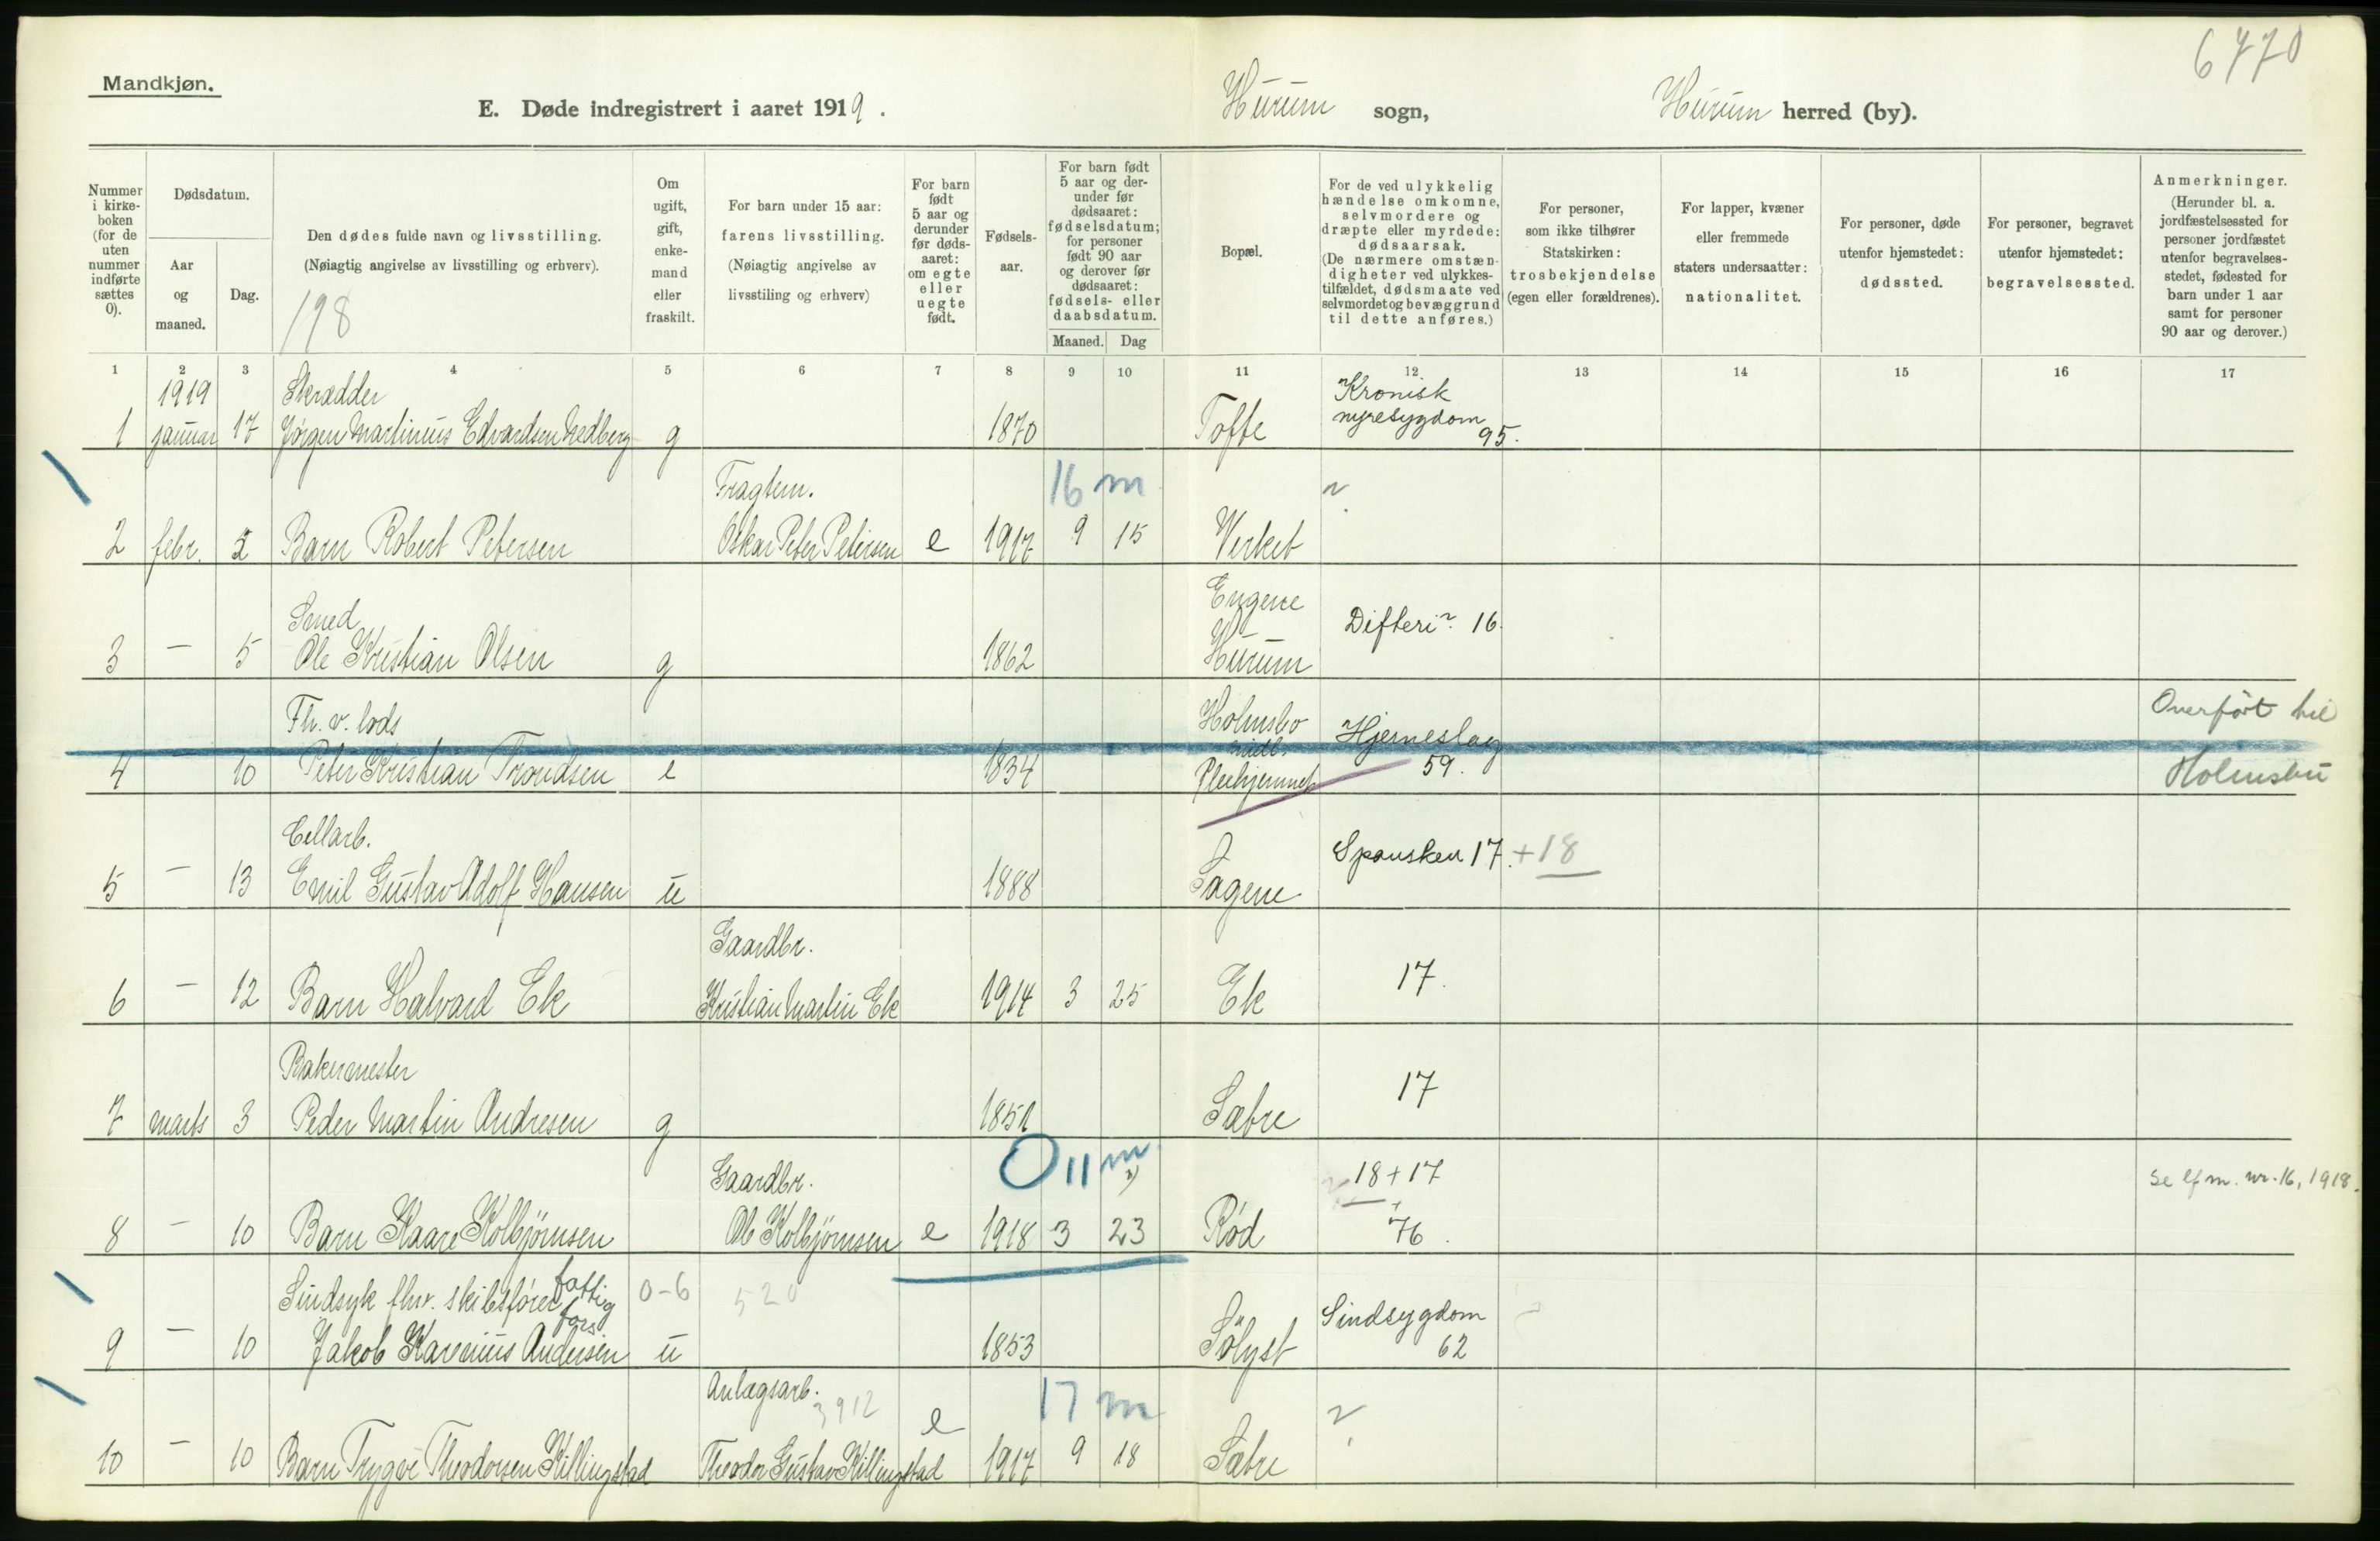 6470
Mandkjøn.
E. Døde indregistrert i aaret 1919. Hurum sogn, Hurum herred (by).
Nummer i kirke-boken (for de uten nummer indførte sættes 0).
Dødsdatum.
Aar og maaned.
Dag.
Den dødes fulde navn og livsstilling.
(Nøiagtig angivelse av livsstilling og erhverv).
198
Om ugift, gift, enke-mand eller fraskilt.
For barn under 15 aar: farens livsstilling.
(Nøiagtig angivelse av livsstiling og erhverv)
For barn født 5 aar og derunder før døds-aaret: om egte eller uegte født.
Fødsels-aar.
For barn født 5 aar og der-under før dødsaaret: fødselsdatum; for personer født 90 aar og derover før dødsaaret: fødsels- eller daabsdatum.
Maaned. Dag
Bopæl.
For de ved ulykkelig hændelse omkomne, selvmordere og dræpte eller myrdede: dødsaarsak.
(De nærmere omstæn-digheter ved ulykkes-tilfældet, dødsmaate ved selvmordet og bevæggrund til dette anføres.)
For personer, som ikke tilhører Statskirken: trosbekjendelse (egen eller forældrenes).
For lapper, kvæner eller fremmede staters undersaatter: nationalitet.
For personer, døde utenfor hjemstedet: dødssted.
For personer, begravet utenfor hjemstedet: begravelsessted.
Anmerkninger.
(Herunder bl. a. jordfæstelsessted for personer jordfæstet utenfor begravelses-stedet, fødested for barn under 1 aar samt for personer 90 aar og derover.)
1 2 3 4 5 6 7 8 9 10 11 12 13 14 15 16 17
1919 Skrædder Kronisk
1 januar 17 Jørgen Martinius Edvardsen Hedberg g 1870 Tofte nyresygdom 95.
Fragtem. 16 m
2 febr. 2 Barn Robert Petersen Oskar Peter Petersen e 1917 9 15 Verket ?
Smed Engene
3 — 5 Ole Kristian Olsen g 1862 Hurum Difteri? 16.
Fh. v. lods Holmsbo Hjerneslag Overført til
4 — 10 Peter Kristian Trondsen e 1834 Pleiehjemmet 59. Holmsbu
Cellarb.
5 — 13 Emil Gustav Adolf Hansen u 1888 Sagene Spansken 17. + 18
Gaardbr.
6 — 12 Barn Halvard Ek Kristian Martin Ek 1914 3 25 Ek 17.
Bakermester
7 marts 3 Peder Martin Andresen g 1851 Sætre 17
Gaardbr. 0 11 m 18 + 17 Se lfm. nr. 16, 1918.
8 — 10 Barn Kaare Kolbjørnsen Ole Kolbjørnsen e 1918 3 23 Rød 76.
Sindsyk fhv. skibsfører fattig 0-6 520 Sindsygdom
fors.
9 — 10 Jakob Kavenius Andersen u 1853 Sølyst 62
Anlægsarb. 3912 17 m
10 — 10 Barn Trygve Theodorsen Killingstad Theodor Gustav Killingstad e 1917 9 18 Sætre ?